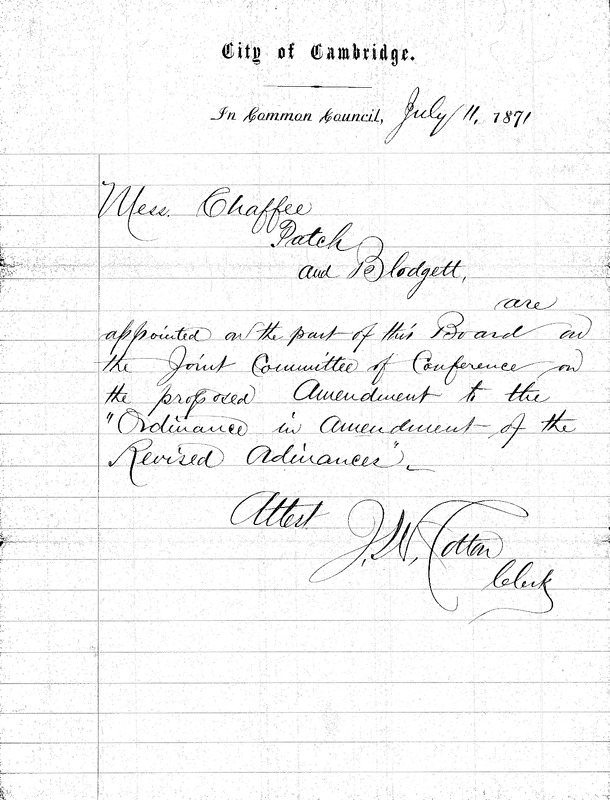 City of Cambridge.
In Common Council, July 11, 1871
Mess. Chaffee
Patch
and Blodgett,
are
appointed on the part of this Board on
the Joint Committee of Conference on
the proposed Amendment to the
"Ordinance in Amendment of the
Revised Ordinances".
Attest
J. W. Cotton
Clerk